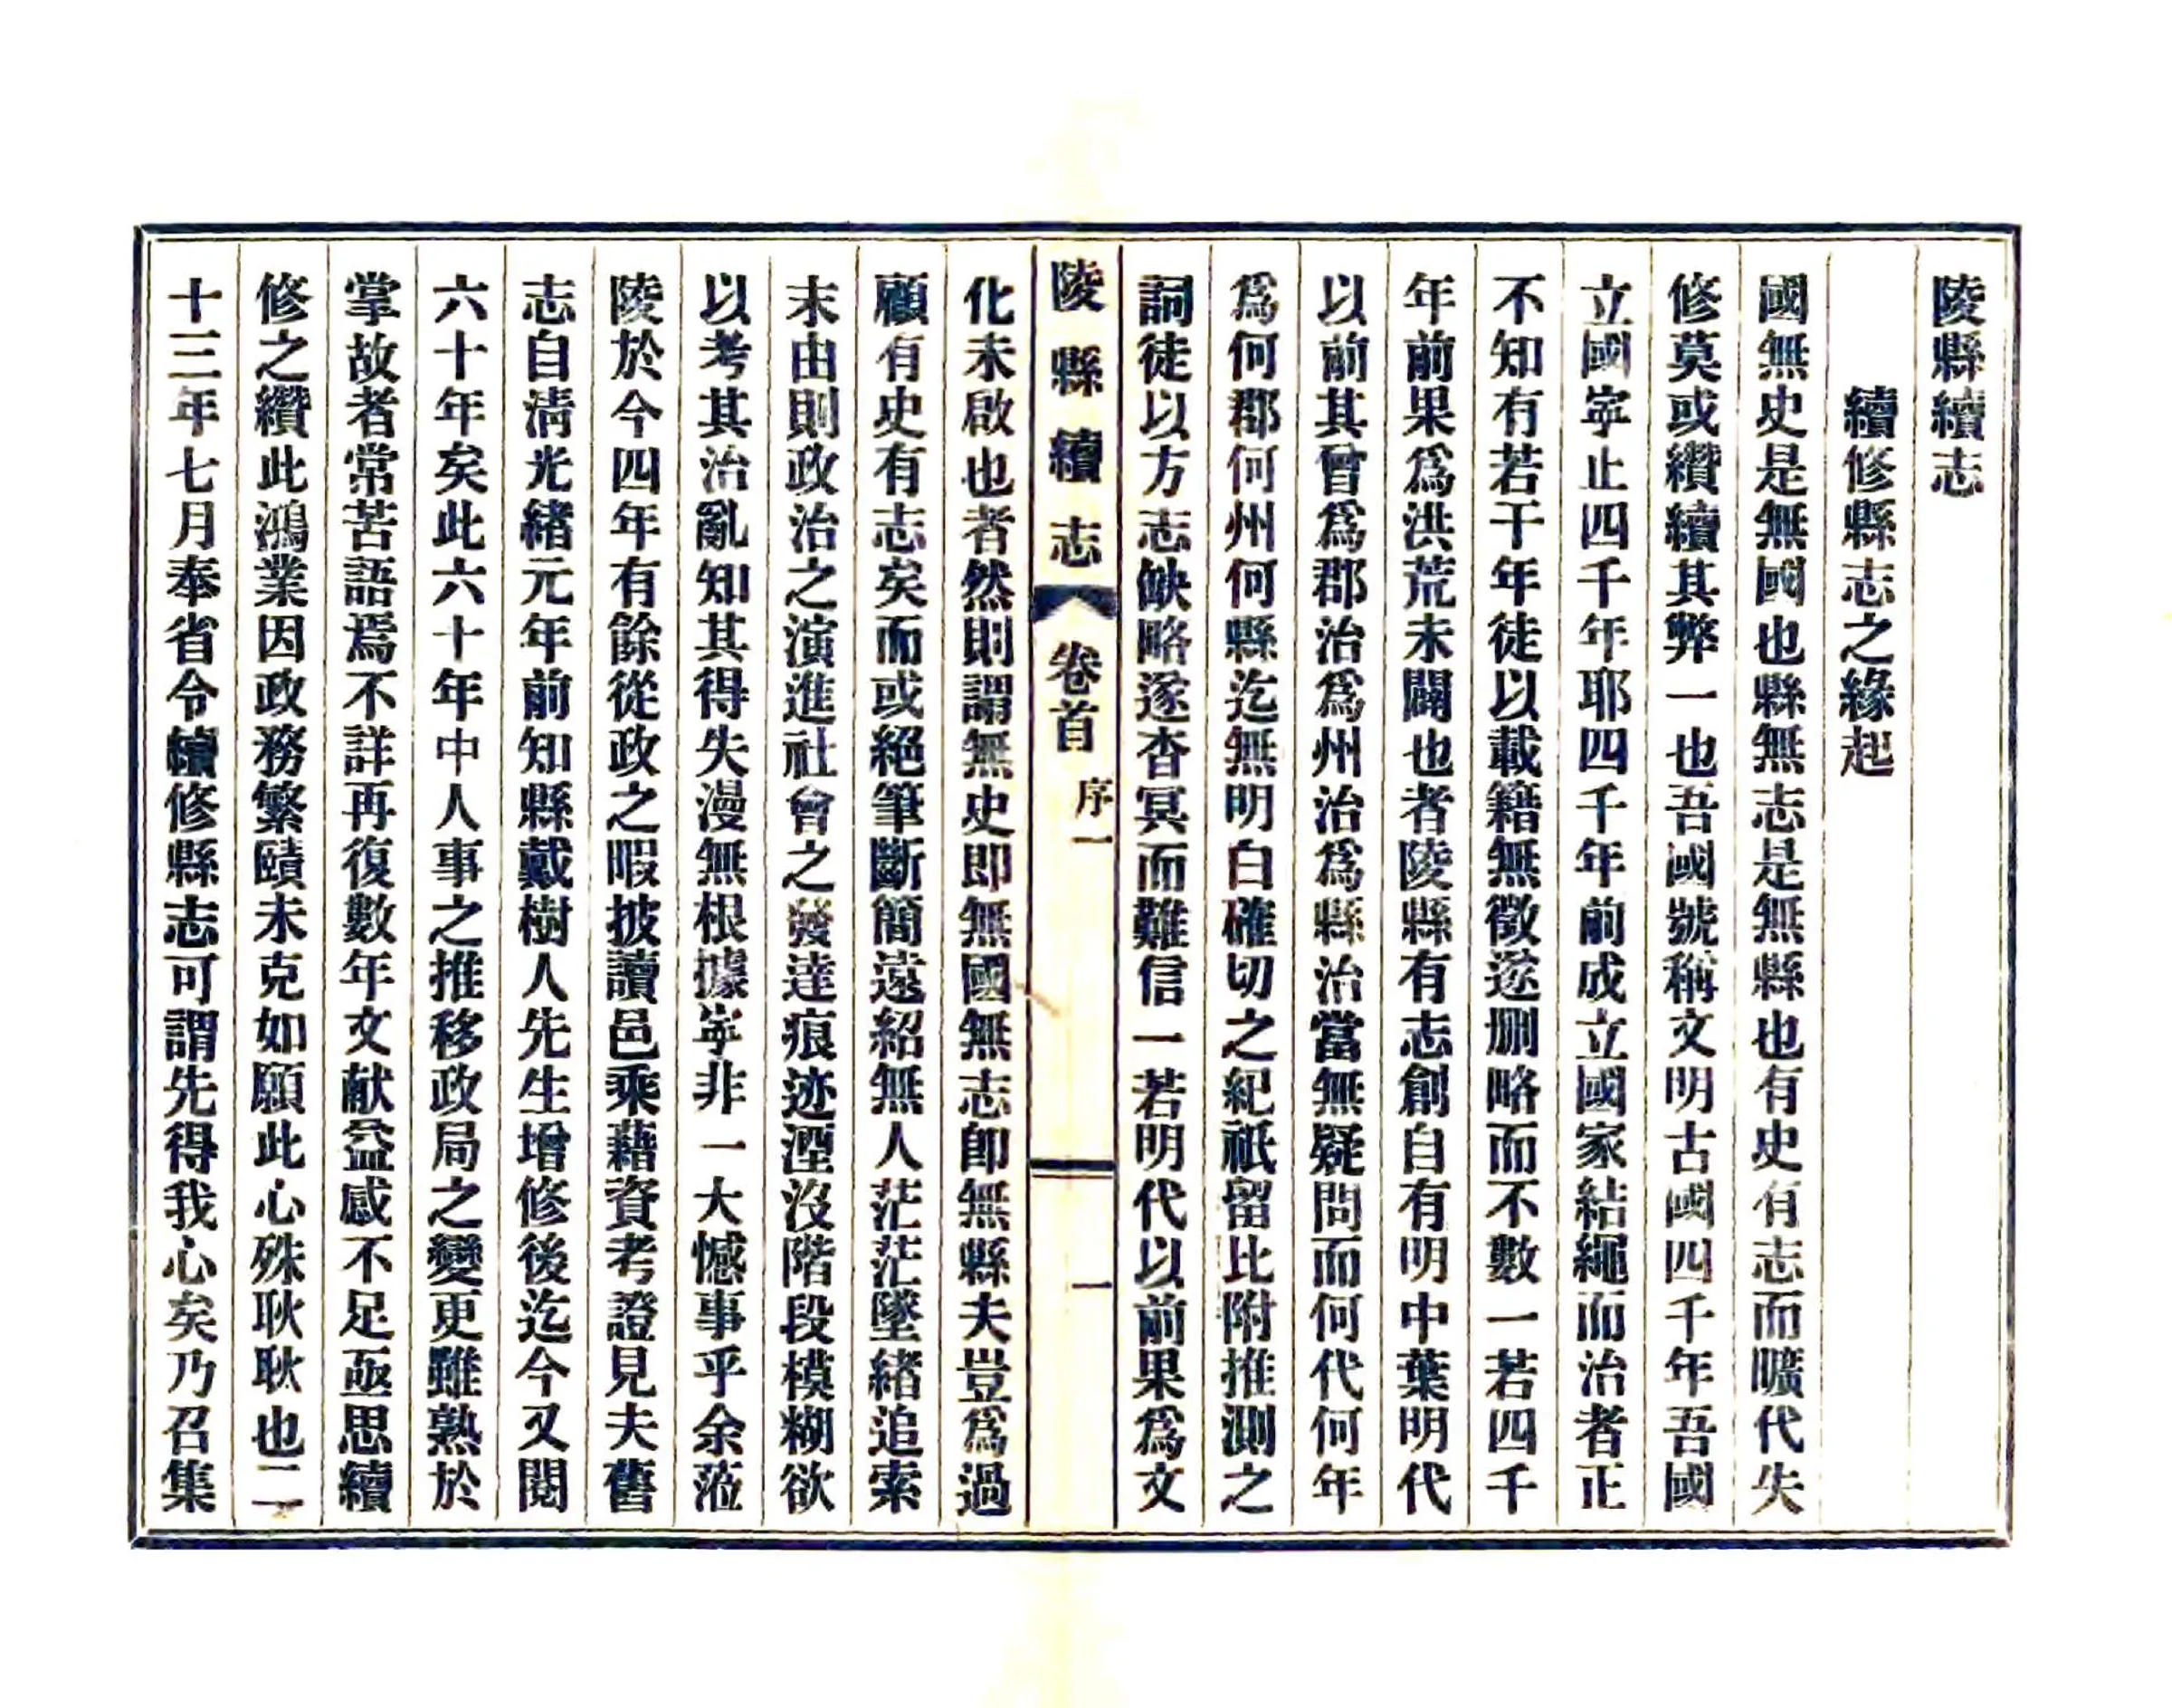 陵縣續志
續修縣志之緣起
國無史是無國也縣無志是無縣也有史有志而曠代失
修莫或纘續其弊一也吾國號稱文明古國四千年吾國
立國寜止四千年耶四千年前成立國家結繩而治者正
不知有若干年徒以載籍無徵遂刪略而不數一若四千
年前果爲洪荒未闢也者陵縣有志創自有明中葉明代
以前其曾爲郡治爲州治爲縣治當無疑問而何代何年
爲何郡何州何縣迄無明白確切之紀祇留比附推測之
詞徒以方志缺略遂杳冥而難信一若明代以前果爲文
陵縣續志
卷首
序一
一
化未啟也者然則謂無史即無國無志卽無縣夫豈爲過
顧有史有志矣而或絕筆斷簡遠紹無人茫茫墜緒追索
末由則政治之演進社會之發達痕迹湮沒階段模糊欲
以考其治亂知其得失漫無根據寜非一大憾事乎余蒞
陵於今四年有餘從政之暇披讀邑乘藉資考證見夫舊
志自清光緒元年前知縣戴樹人先生增修後迄今又閱
六十年矣此六十年中人事之推移政局之變更雖熟於
掌故者常苦語焉不詳再復數年文献益感不足亟思續
修之纘此鴻業因政務繁賾未克如願此心殊耿耿也二
十三年七月奉省令續修縣志可謂先得我心矣乃召集